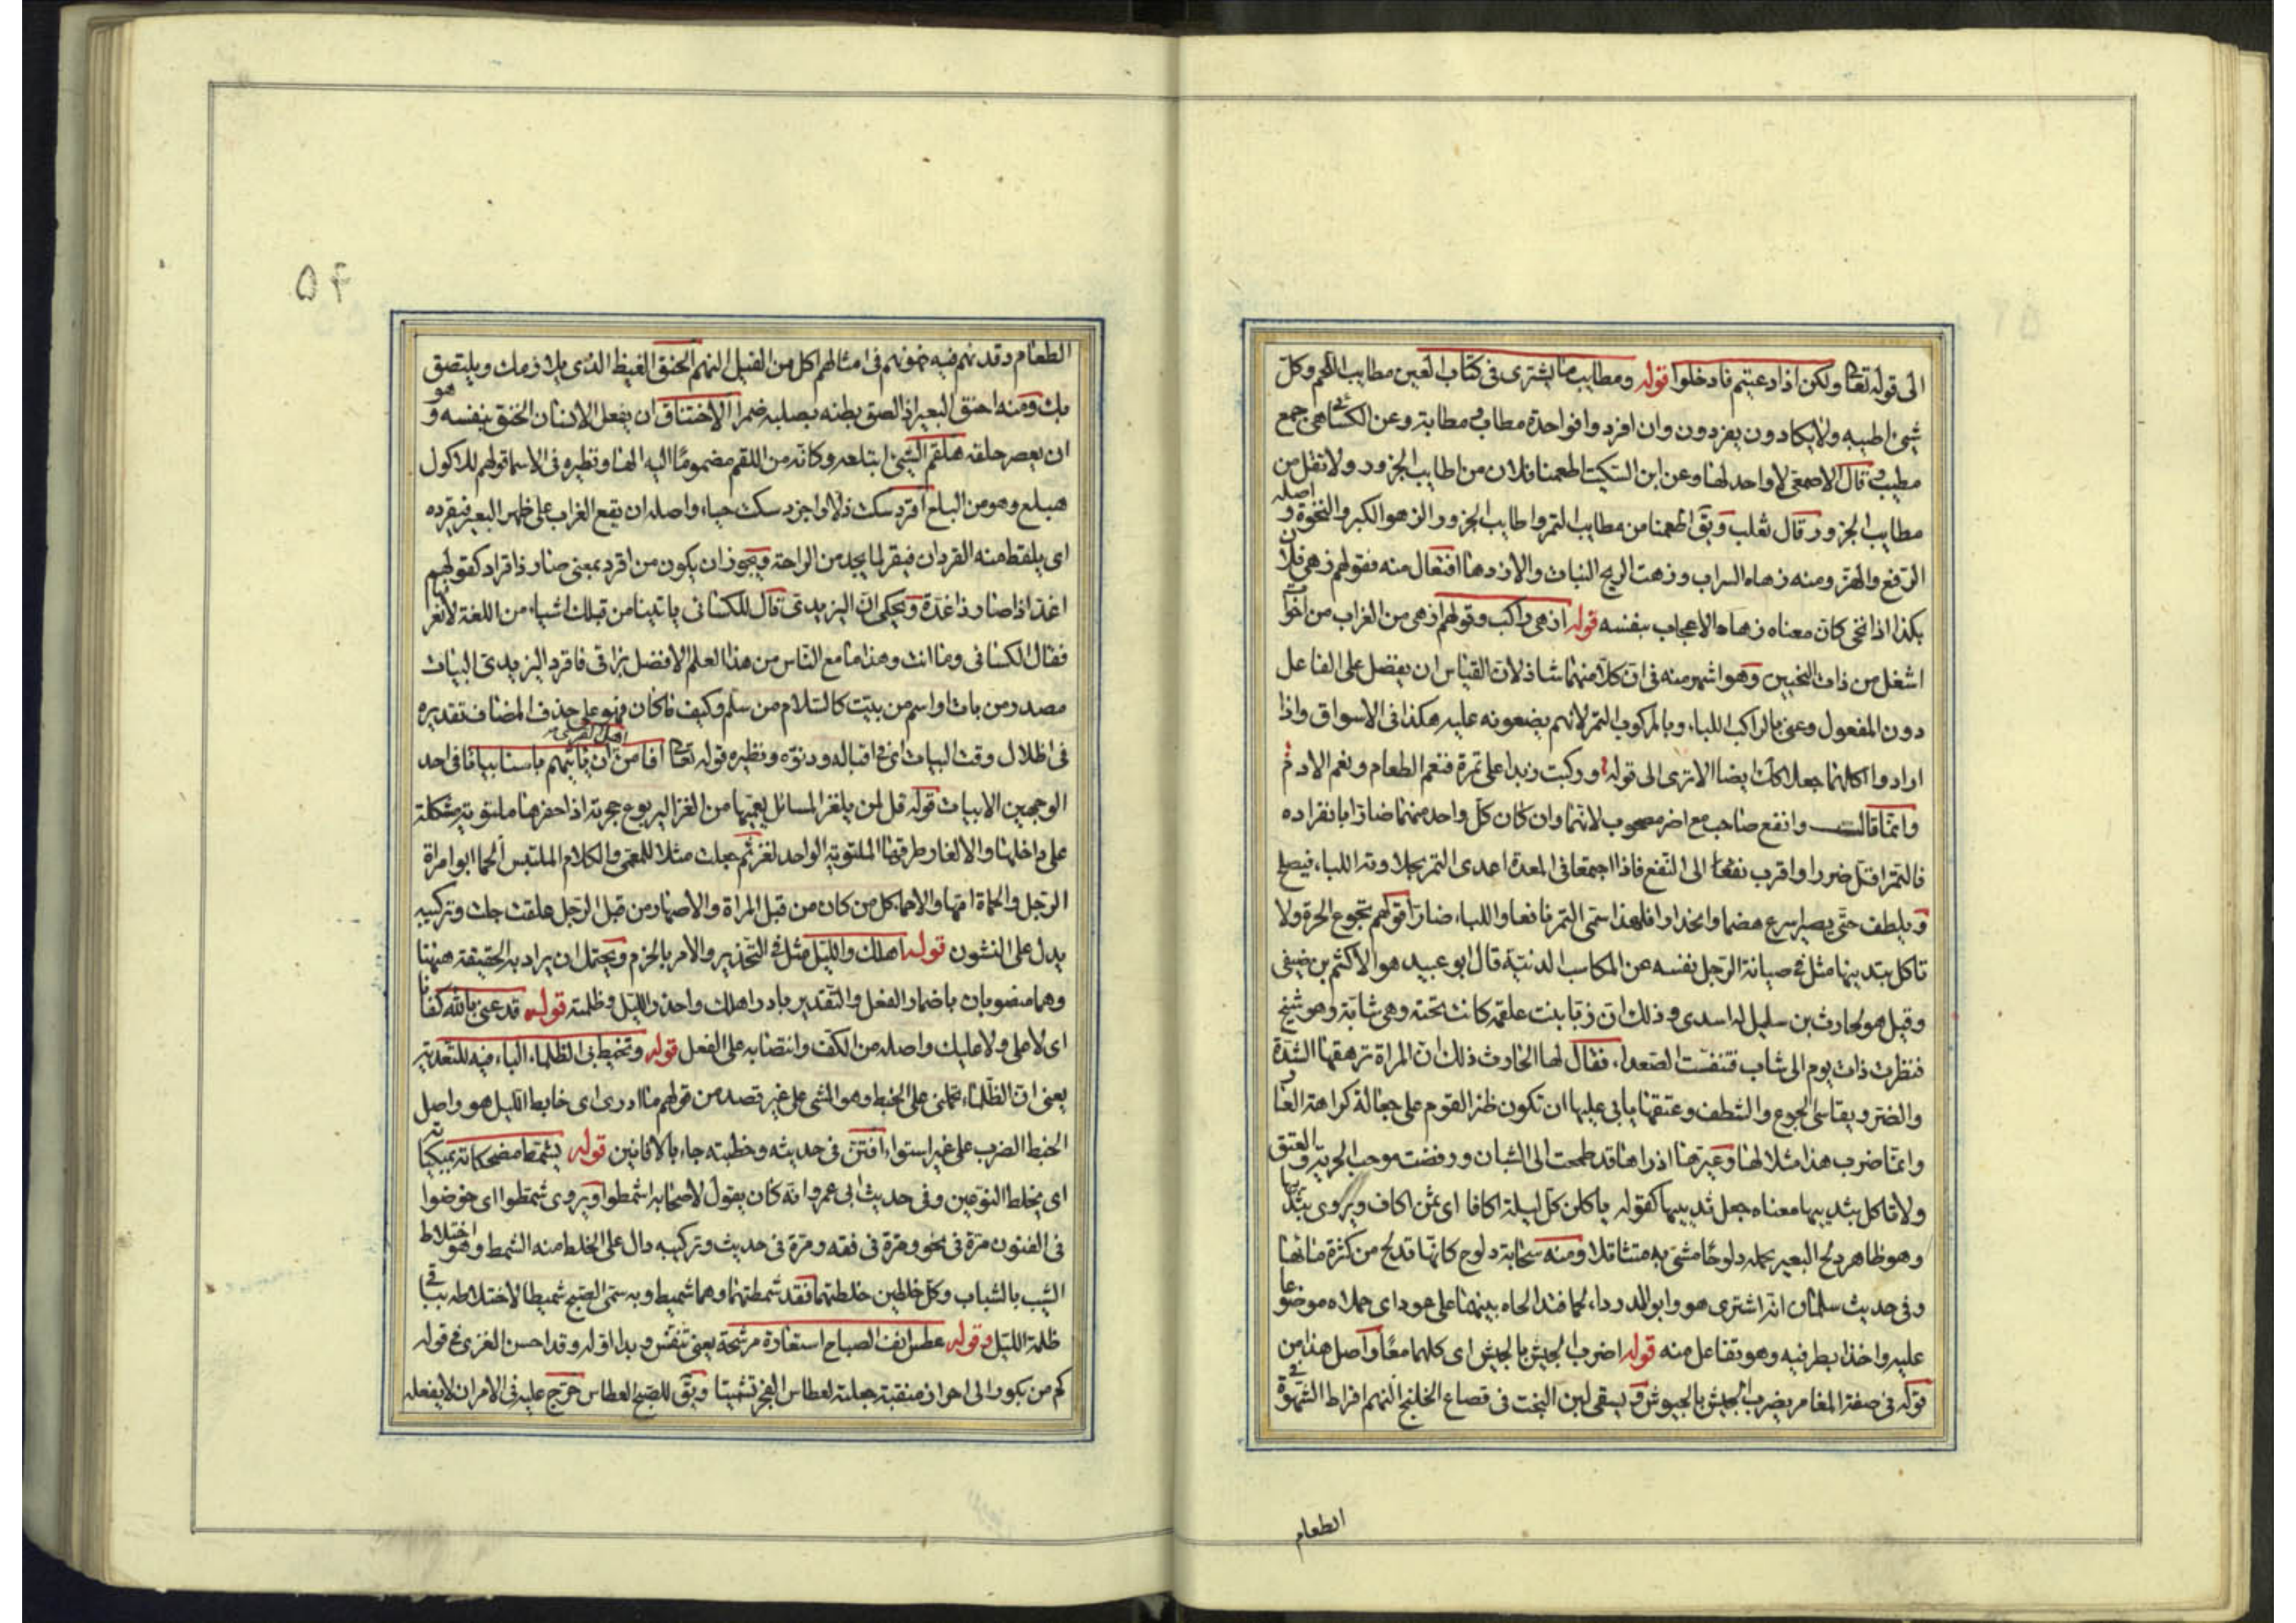 الى قوله تعا ولكن اذا دعيتم فادخلوا قوله ومطايب ما يشترى فى كتاب العين مطايب اللحم وكل
شئ اطيبه ولا يكادون يفردون وان افرد وافواحدة مطاب ومطابة وعن الكسائى هى جمع
مطيب قال الاصمعى لا واحد لها وعن ابن السكيت اطعمنا فلان من اطايب الجزور ولا تقل من
مطايب الجزور وقال ثعلب ويق اطعمنا من مطايب التمر واطايب الجزور الزهو الكبر والنخوة واصله
الرفع والهز ومنه زهاه السراب وزهت الريح النبات والازدها افتعال منه فقولهم زهى فلان
بكذا اذا نخى كان معناه زهاه الاعجاب بنفسه قوله ازهى راكب وقولهم ازهى من الغراب من اخوات
اشغل من ذات النحيين وهو اشهر منه فى ان كلا منهما شاذ لان القياس ان يفضل على الفاعل
دون المفعول وعنى بالراكب اللباء وبالمركوب التمر لانهم يضعونه عليه هكذا فى الاسواق واذا
ارادوا اكلهما جعلا كك ايضا الا ترى الى قوله وركبت زبدا على تمرة فنعم الطعام ونعم الادم
وانما قالت وانفع صاحب مع اضر مصحوب لانهما وان كان كل واحد منهما ضارا بانفراده
فالتمر اقل ضررا واقرب نفعا الى النفع فاذا اجتمعا فى المعدة اعدى التمر بحلاوته اللباء فيصلح
ويلطف حتى يصير اسرع هضما وانحدارا فلهذا سمى التمر نافعا واللباء ضارا قولهم تجوع الحرة ولا
تاكل بثدييها مثل فى صيانة الرجل نفسه عن المكاسب الدنية قال ابو عبيد هو لاكثم بن صيفى
وقيل هو لحارث بن سليل الاسدى وذلك ان زبا بنت علقمة كانت تحته وهى شابة وهو شيخ
فنظرت ذات يوم الى شاب فتنفست الصعداء فقال لها الحارث ذلك ان المراة ترهقها الشدة
والضر ويقاسى الجوع والشظف وعتقها يابى عليها ان تكون ظئر القوم على جعالة كراهة العار
وانما ضرب هذا مثلا لها وعيرها اذ راها قد طمحت الى الشبان ورفضت موجب الحرية والعتق
ولا تاكل بثدييها معناه جعل ثدييها كقوله ياكلن كل ليلة اكافا اى ثمن اكاف ويروى بثدييها
وهو ظاهر دلح البعير بحمله دلوحا مشى به متثاقلا ومنه سحابة دلوح كانها تدلح من كثرة مائها
وفى حديث سلمان انه اشترى هو وابو الدرداء لحما فتدالحاه بينهما على عود اى حملاه موضوعا
عليه واخذا بطرفيه وهو تفاعل منه قوله اضرب الجيش بالجيش اى كلهما معا واصل هذا من
قوله فى صفة المغامر يضرب الجيش بالجيوش ويسقى لبن البخت فى قصاع الخلنج النهم افراط الشهوة فى
الطعام
٥٤
الطعام وقد نهم فيه فهو نهم فى امثالهم اكل من الفيل النهم الحنق الغيظ الذى يلازمك ويلتصق
بك ومنه احنق البعير اذا لصق بطنه بصلبه ضمرا الاختناق ان يفعل الانسان الخنق بنفسه وهو
ان يعصر حلقه هلقم الشئ ابتلعه وكانه من اللقم مضموما اليه الها ونظيره فى الاسما قولهم للاكول
هبلع وهو من البلع اقرد سكت ذلا واخرد سكت حياء واصله ان يقع الغراب على ظهر البعير فيقرده
اى يلقط منه القردان فيقر لما يجد من الراحة ويجوز ان يكون من اقرد بمعنى صار ذا قراد كقولهم
اغد اذا صار ذا غدة ويحكى ان اليزيدى قال للكسائى ياتينا من قبلك اشياء من اللغة لا نعرفها
فقال الكسائى وما انت وهذا ما مع الناس من هذا العلم الا فضل بزاقى فاقرد اليزيدى البيات
مصدر من بات او اسم من بيت كالسلام من سلم وكيف ما كان فهو على حذف المضاف تقديره
فى اظلال وقت البيات اى فى اقباله ودنوه ونظيره قوله تعا افامن اهل القرى ان ياتيهم باسنا بياتا فى احد
الوجهين الابيات قوله قل لمن يلغز المسائل يعميها من الغز اليربوع حجرته اذا حفرها ملتوية مشكلة
على داخلها والالغاز طرقها الملتوية الواحد لغز ثم جعلت مثلا للمعمى والكلام الملتبس الحما ابو امراة
الرجل والحماة امها والاحماء كل من كان من قبل المراة والاصهار من قبل الرجل علقت جلت وتركيبه
يدل على النشون قوله اهلك والليل مثل فى التحذير والامر بالحزم ويحتمل ان يراد به الحقيقة ههنا
وهما منصوبان باضمار الفعل والتقدير بادر اهلك واحذر الليل وظلمته قوله قد عنى بالله كفافا
اى لا على ولا عليك واصله من الكف وانتصابه على الفعل قوله وتخبط بى الظلماء الباء فيه للتعدية
يعنى ان الظلماء تحملنى على الخبط وهو المشى على غير قصد من قولهم ما ادرى اى خابط الليل هو واصل
الخبط الضرب على غير استواء افتن فى حديثه وخطبته جاء بالافانين قوله يشمط مضحكاته بمبكياته
اى يخلط النوعين وفى حديث ابى عمرو انه كان يقول لاصحابه اشمطوا ويروى شمطوا اى خوضوا
فى الفنون مرة فى نحو ومرة فى فقه ومرة فى حديث وتركيبه دال على الخلط منه الشمط وهو اختلاط
الشيب بالشباب وكل خلطين خلطتهما فقد شمطتهما وهما شميط وبه سمى الصبح شميطا لاختلاطه بباقى
ظلمة الليل وقوله عطس انف الصباح استعارة مرشحة يعنى تنفس وبدا اوله وقد احسن الغزى فى قوله
كم من بكور الى احراز منقبة جعلته لعطاس الفجر تشميتا ويق للصبح العطاس حرج عليه فى الامر ان لا يفعله